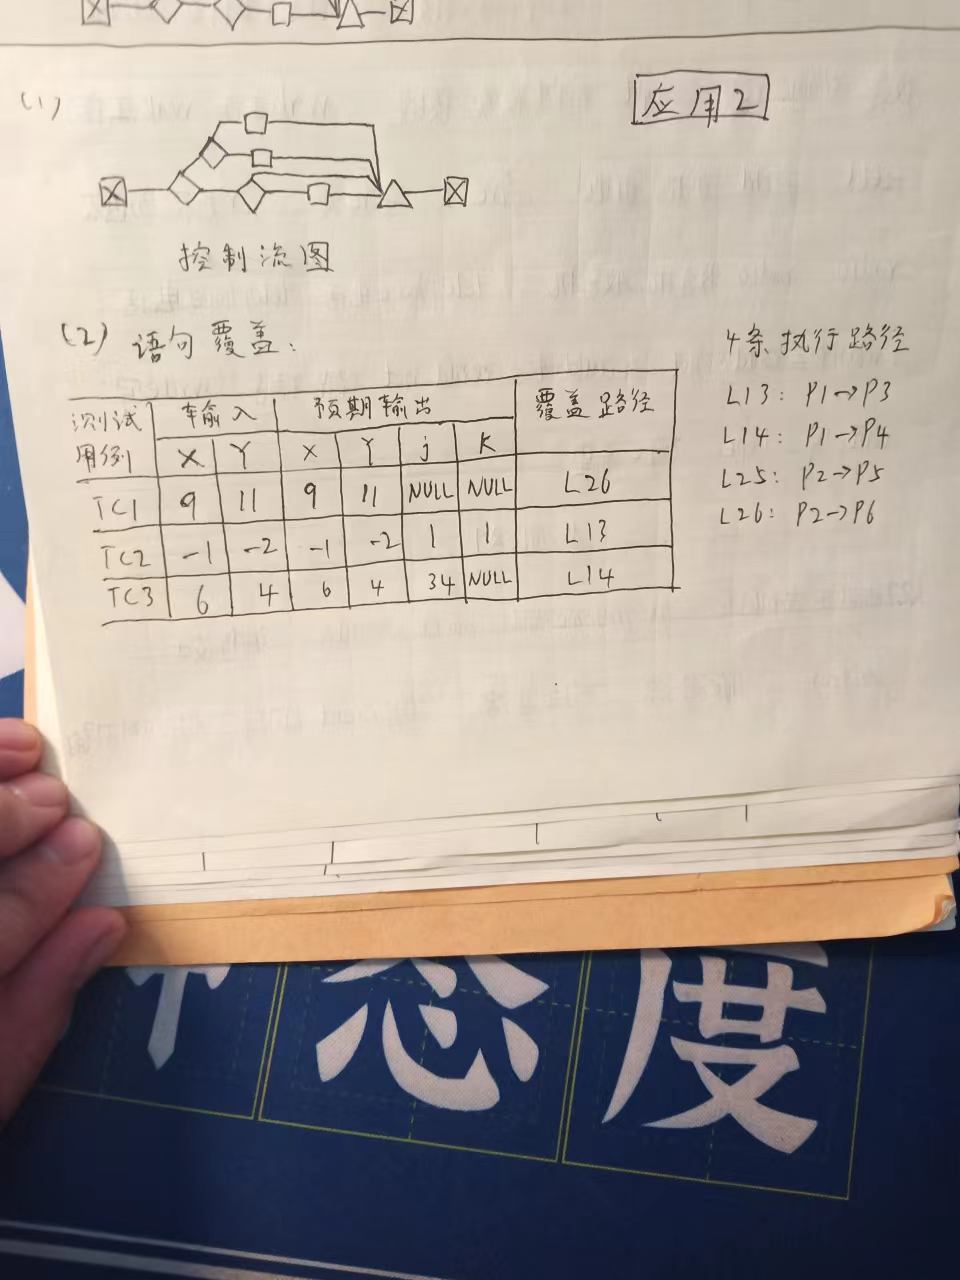 (1)
应用2
控制流图
(2) 语句覆盖：
4条执行路径
L13: P1→P3
L14: P1→P4
L25: P2→P5
L26: P2→P6
测试用例 输入 预期输出 覆盖路径
X Y X Y j K
TC1 9 11 9 11 NULL NULL L26
TC2 -1 -2 -1 -2 1 1 L13
TC3 6 4 6 4 34 NULL L14
态度